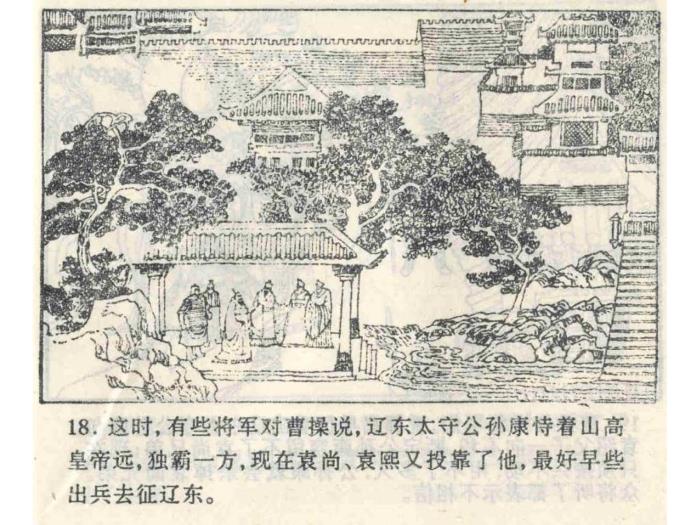 18. 这时，有些将军对曹操说，辽东太守公孙康恃着山高
皇帝远，独霸一方，现在袁尚、袁熙又投靠了他，最好早些
出兵去征辽东。